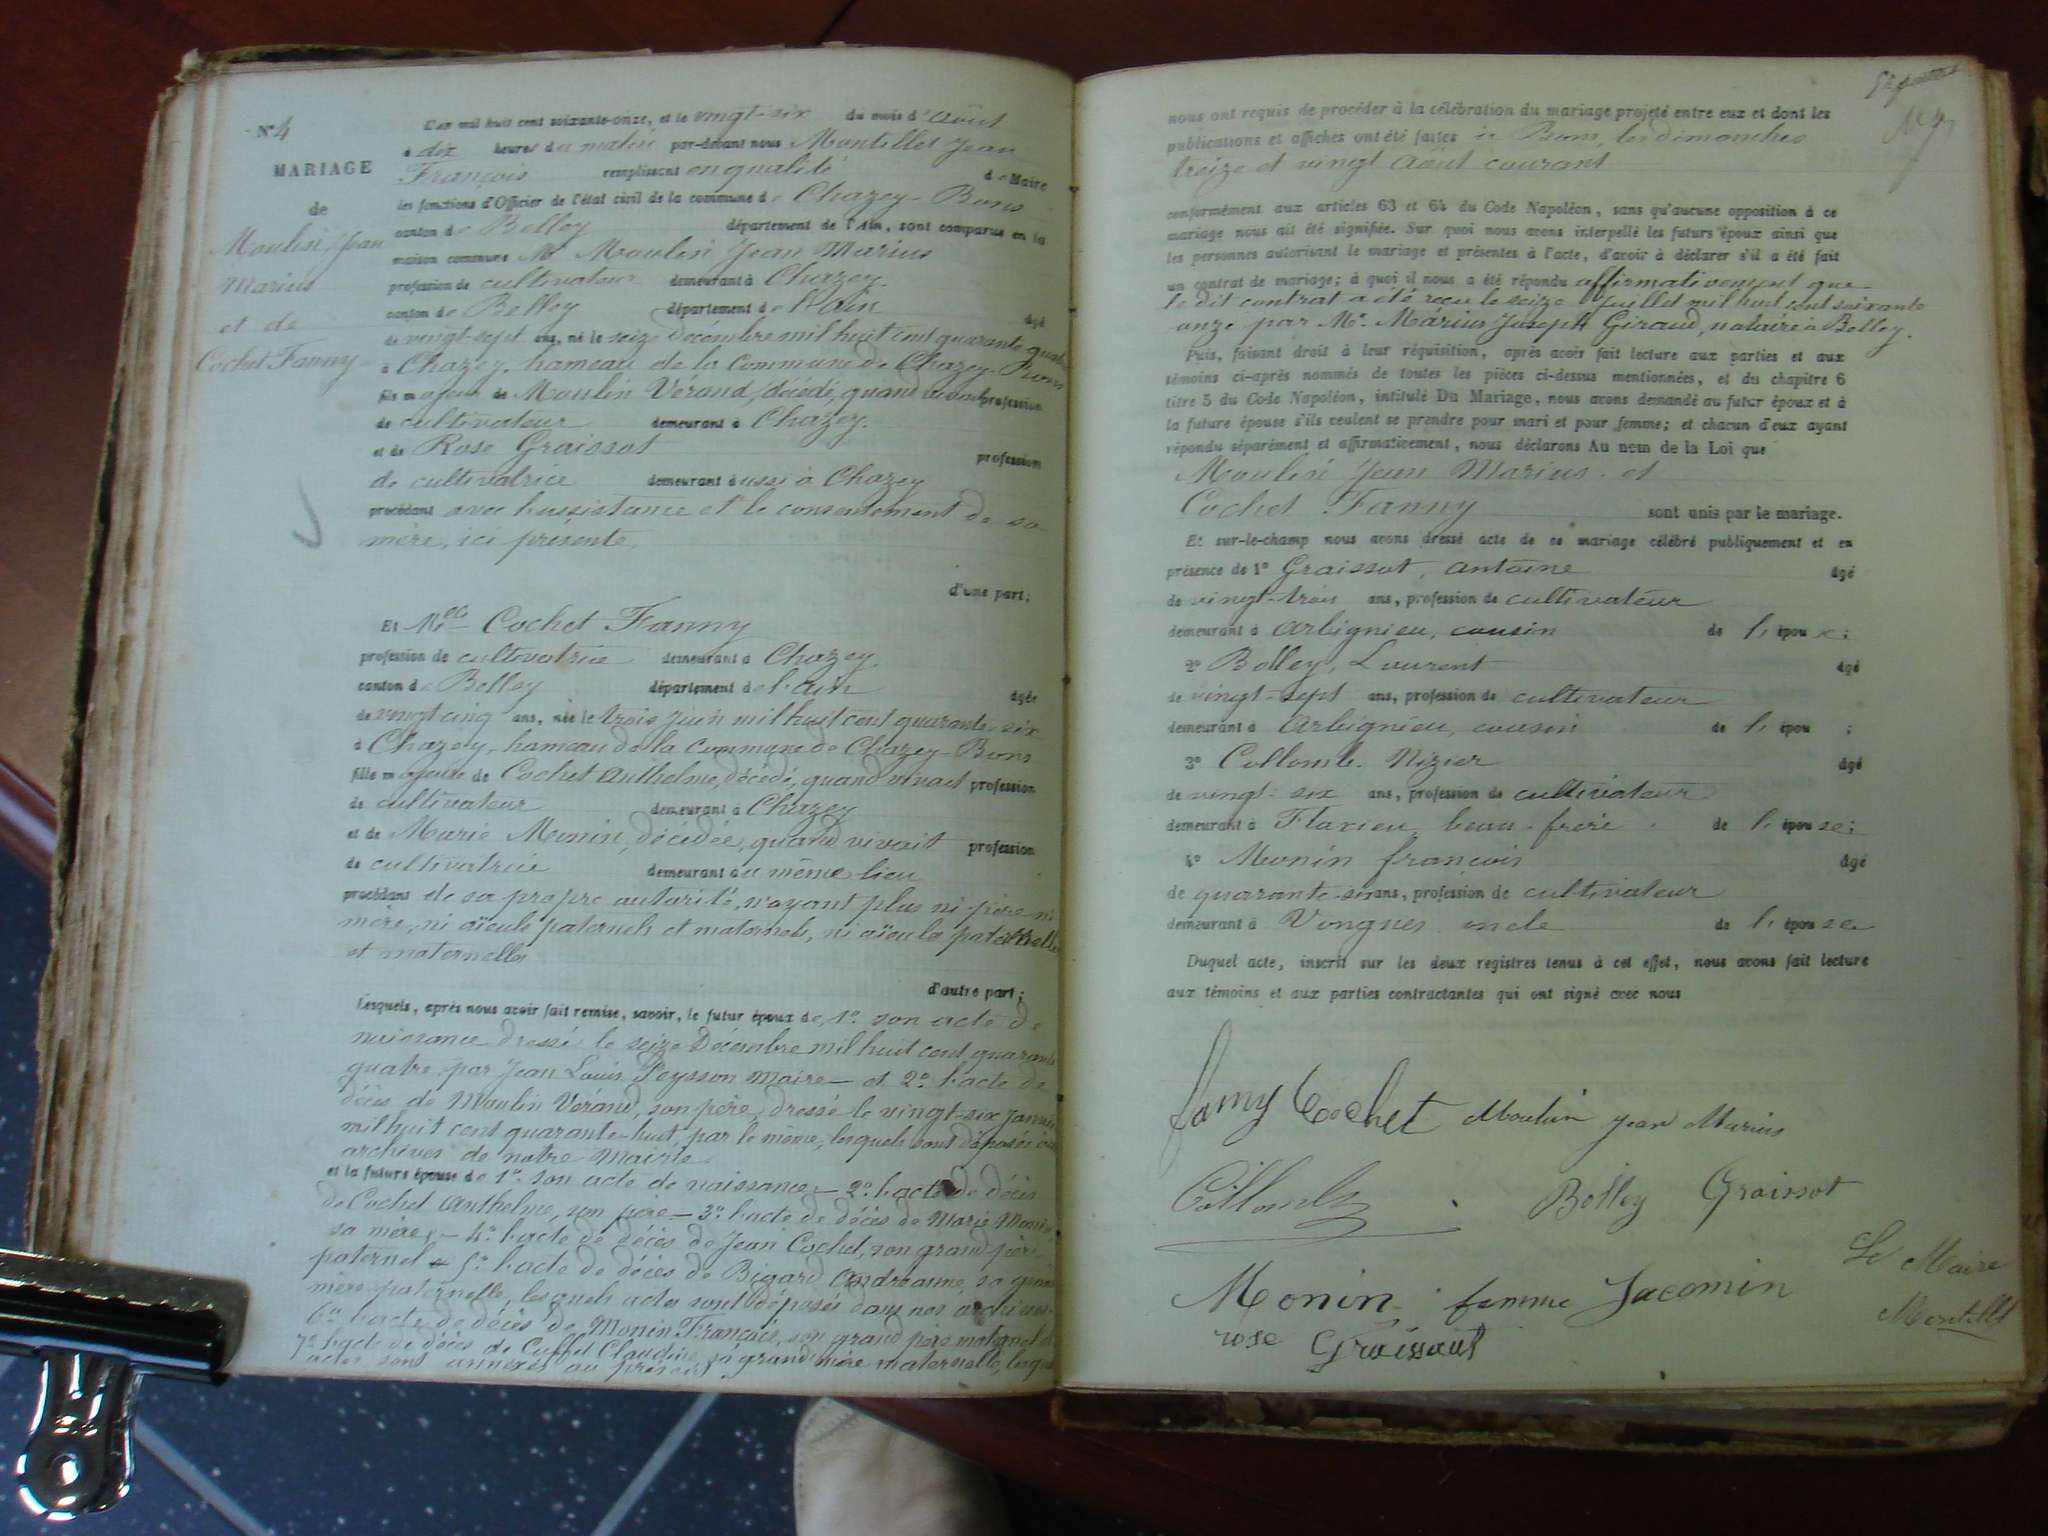 N° 4
MARIAGE
de
Moulin Jean
Marius
et de
Cochet Fanny
L'an mil huit cent soixante-onze, et le vingt-six du mois d'Août
à dix heures du matin par-devant nous Montillet Jean
François remplissant en qualité de Maire
les fonctions d'Officier de l'état civil de la commune de Chazey-Bons
canton de Belley département de l'Ain, sont comparus en la
maison commune Mr Moulin Jean Marius
profession de cultivateur demeurant à Chazey.
canton de Belley département de l'Ain âgé
de vingt-sept ans, né le seize Décembre mil huit cent quarante quatre
à Chazey, hameau de la Commune de Chazey-Bons
fils majeur de Moulin Vérand, décédé, quand vivait profession
de cultivateur demeurant à Chazey.
et de Rose Graissot profession
de cultivatrice demeurant aussi à Chazey
procédant avec l'assistance et le consentement de sa
mère, ici présente,
d'une part;
Et Mlle Cochet Fanny
profession de cultivatrice demeurant à Chazey
canton de Belley département de l'Ain âgée
de vingt cinq ans, née le trois Juin mil huit cent quarante-six
à Chazey, hameau de la Commune de Chazey-Bons
fille majeure de Cochet Anthelme, décédé, quand vivait profession
de cultivateur demeurant à Chazey
et de Marie Monin, décédée, quand vivait profession
de cultivatrice demeurant au même lieu
procédant de sa propre autorité, n'ayant plus ni père ni
mère, ni aïeuls paternels et maternels, ni aïeules paternelles
et maternelles
d'autre part;
Lesquels, après nous avoir fait remise, savoir, le futur époux de 1° son acte de
naissance dressé le seize Décembre mil huit cent quarante
quatre par Jean Louis Peysson Maire – et 2° l'acte de
décès de Moulin Vérand, son père, dressé le vingt-six Janvier
mil huit cent quarante-huit, par le même, lesquels sont déposés aux
archives de notre Mairie
et la future épouse de 1° son acte de naissance – 2° l'acte de décès
de Cochet Anthelme, son père – 3° l'acte de décès de Marie Monin
sa mère – 4° l'acte de décès de Jean Cochet, son grand-père
paternel – 5° l'acte de décès de Bigard Andréanne, sa grand
mère paternelle, lesquels actes sont déposés dans nos archives –
6° l'acte de décès de Monin François, son grand père maternel et
7° l'acte de décès de Cuffet Claudine, sa grand'mère maternelle, lesquels
actes sont annexés au présent
nous ont requis de procéder à la célébration du mariage projeté entre eux et dont les
publications et affiches ont été faites à Bons, les dimanches
treize et vingt Août courant
conformément aux articles 63 et 64 du Code Napoléon, sans qu'aucune opposition à ce
mariage nous ait été signifiée. Sur quoi nous avons interpellé les futurs époux ainsi que
les personnes autorisant le mariage et présentes à l'acte, d'avoir à déclarer s'il a été fait
un contrat de mariage; à quoi il nous a été répondu affirmativement que
le dit contrat a été reçu le seize Juillet mil huit cent soixante
onze par Me Márius Joseph Giraud, notaire à Belley.
Puis, faisant droit à leur réquisition, après avoir fait lecture aux parties et aux
témoins ci-après nommés de toutes les pièces ci-dessus mentionnées, et du chapitre 6
titre 5 du Code Napoléon, intitulé Du Mariage, nous avons demandé au futur époux et à
la future épouse s'ils veulent se prendre pour mari et pour femme; et chacun d'eux ayant
répondu séparément et affirmativement, nous déclarons Au nom de la Loi que
Moulin Jean Marius et
Cochet Fanny sont unis par le mariage.
Et sur-le-champ nous avons dressé acte de ce mariage célébré publiquement et en
présence de 1° Graissot, Antoine âgé
de vingt-trois ans, profession de cultivateur
demeurant à Arbignieu, cousin de l'époux;
2° Bolley, Laurent âgé
de vingt-sept ans, profession de cultivateur
demeurant à Arbignieu, cousin de l'épou ;
3° Collomb. Nizier âgé
de vingt-six ans, profession de cultivateur
demeurant à Flaxieu beau-frère de l'épouse;
4° Monin françois âgé
de quarante-six ans, profession de cultivateur
demeurant à Vongnes oncle de l'épouse
Duquel acte, inscrit sur les deux registres tenus à cet effet, nous avons fait lecture
aux témoins et aux parties contractantes qui ont signé avec nous
fanny Cochet Moulin Jean Marius
Collomb Bolley Graissot
Le Maire
Monin femme Jacomin
Montillet
rose Graissaut